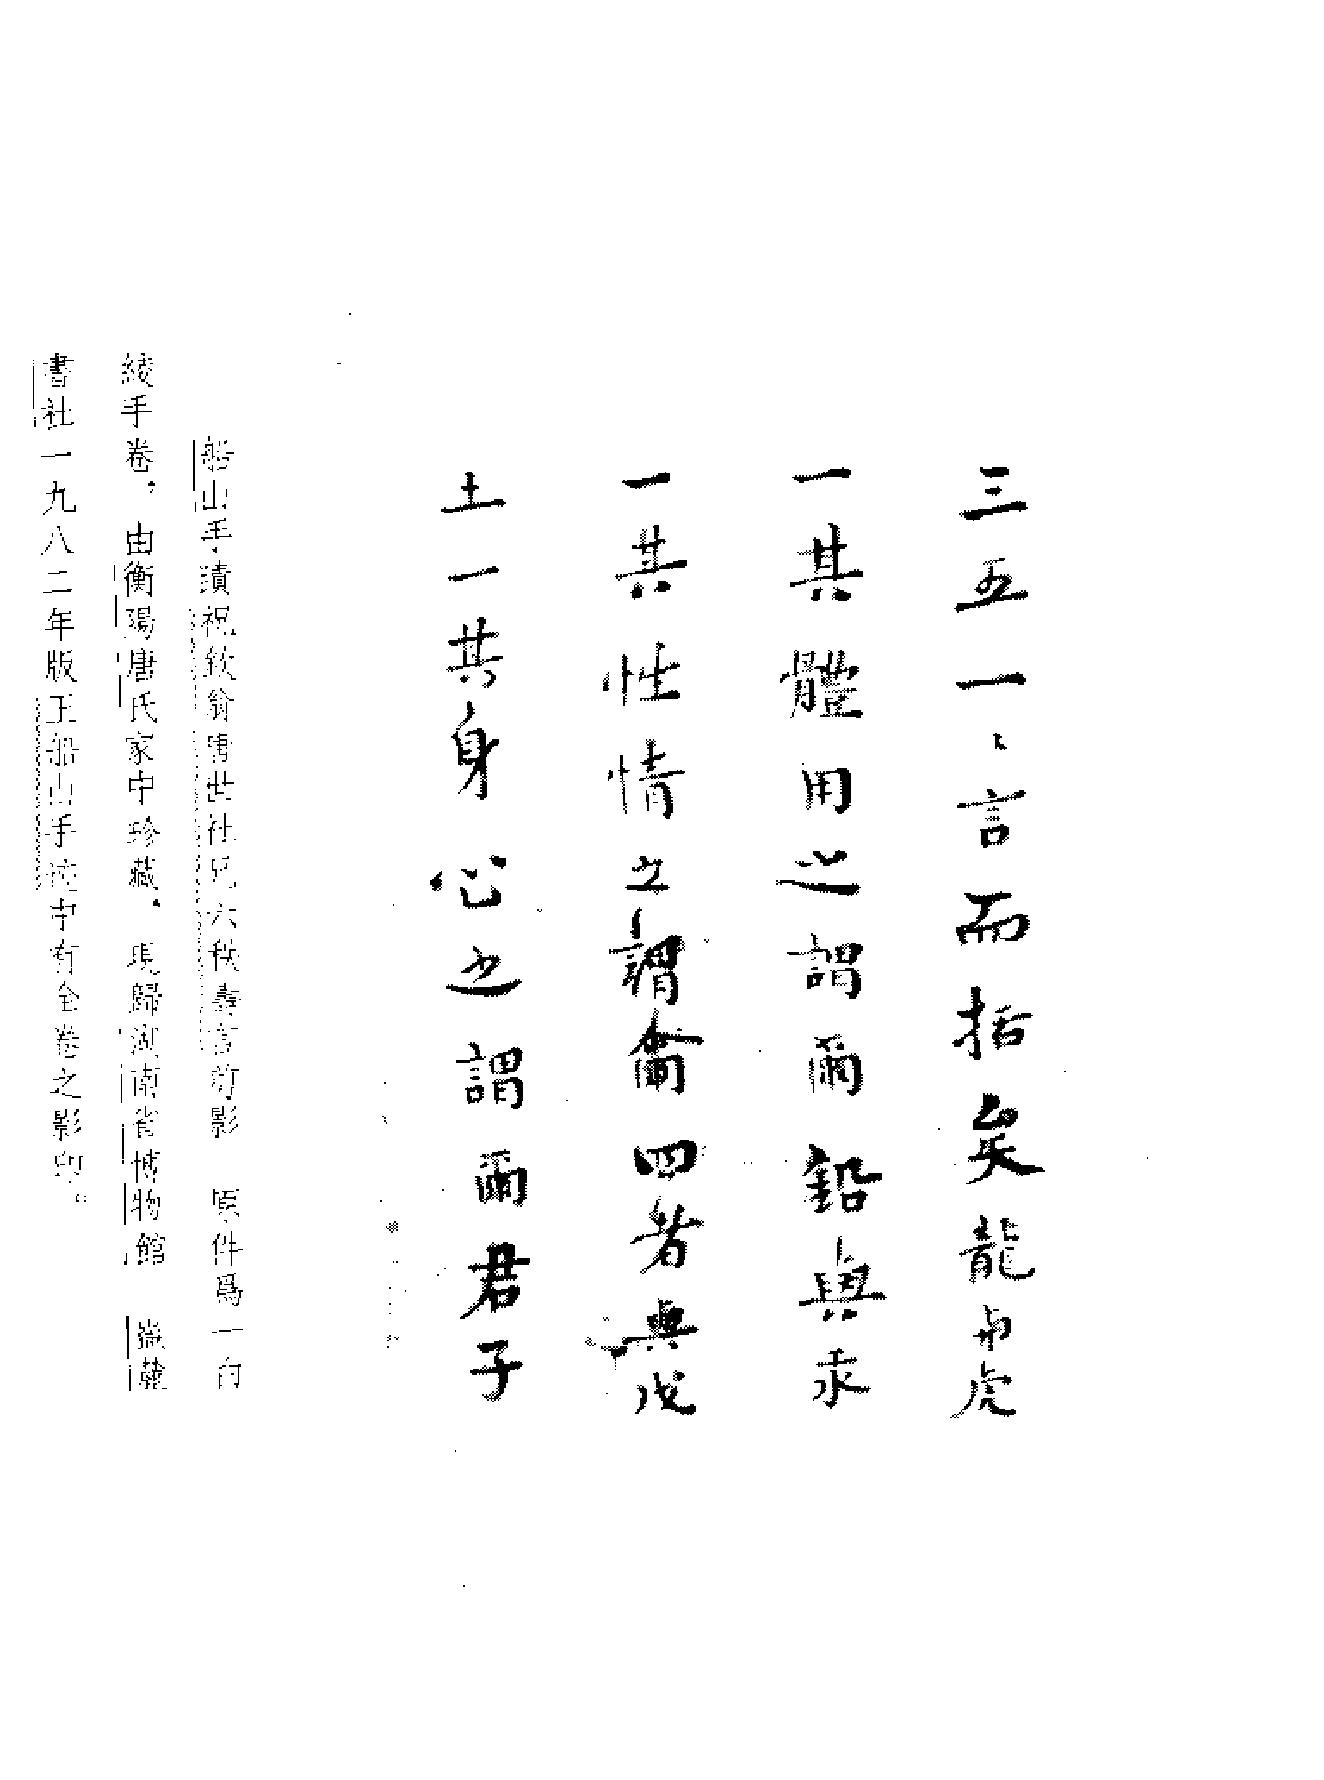 三五一、言而括矣龍与虎
一其體用之謂爾鉛與汞
一其性情之謂爾四者與戊
土一其身心之謂爾君子
船山手漬祝欽翁唐世社兄六秩壽言剪影 原件爲一白
綾手卷，由衡陽唐氏家中珍藏，現歸湖南省博物館 嶽麓
書社一九八二年版王船山手迹中有全卷之影印。